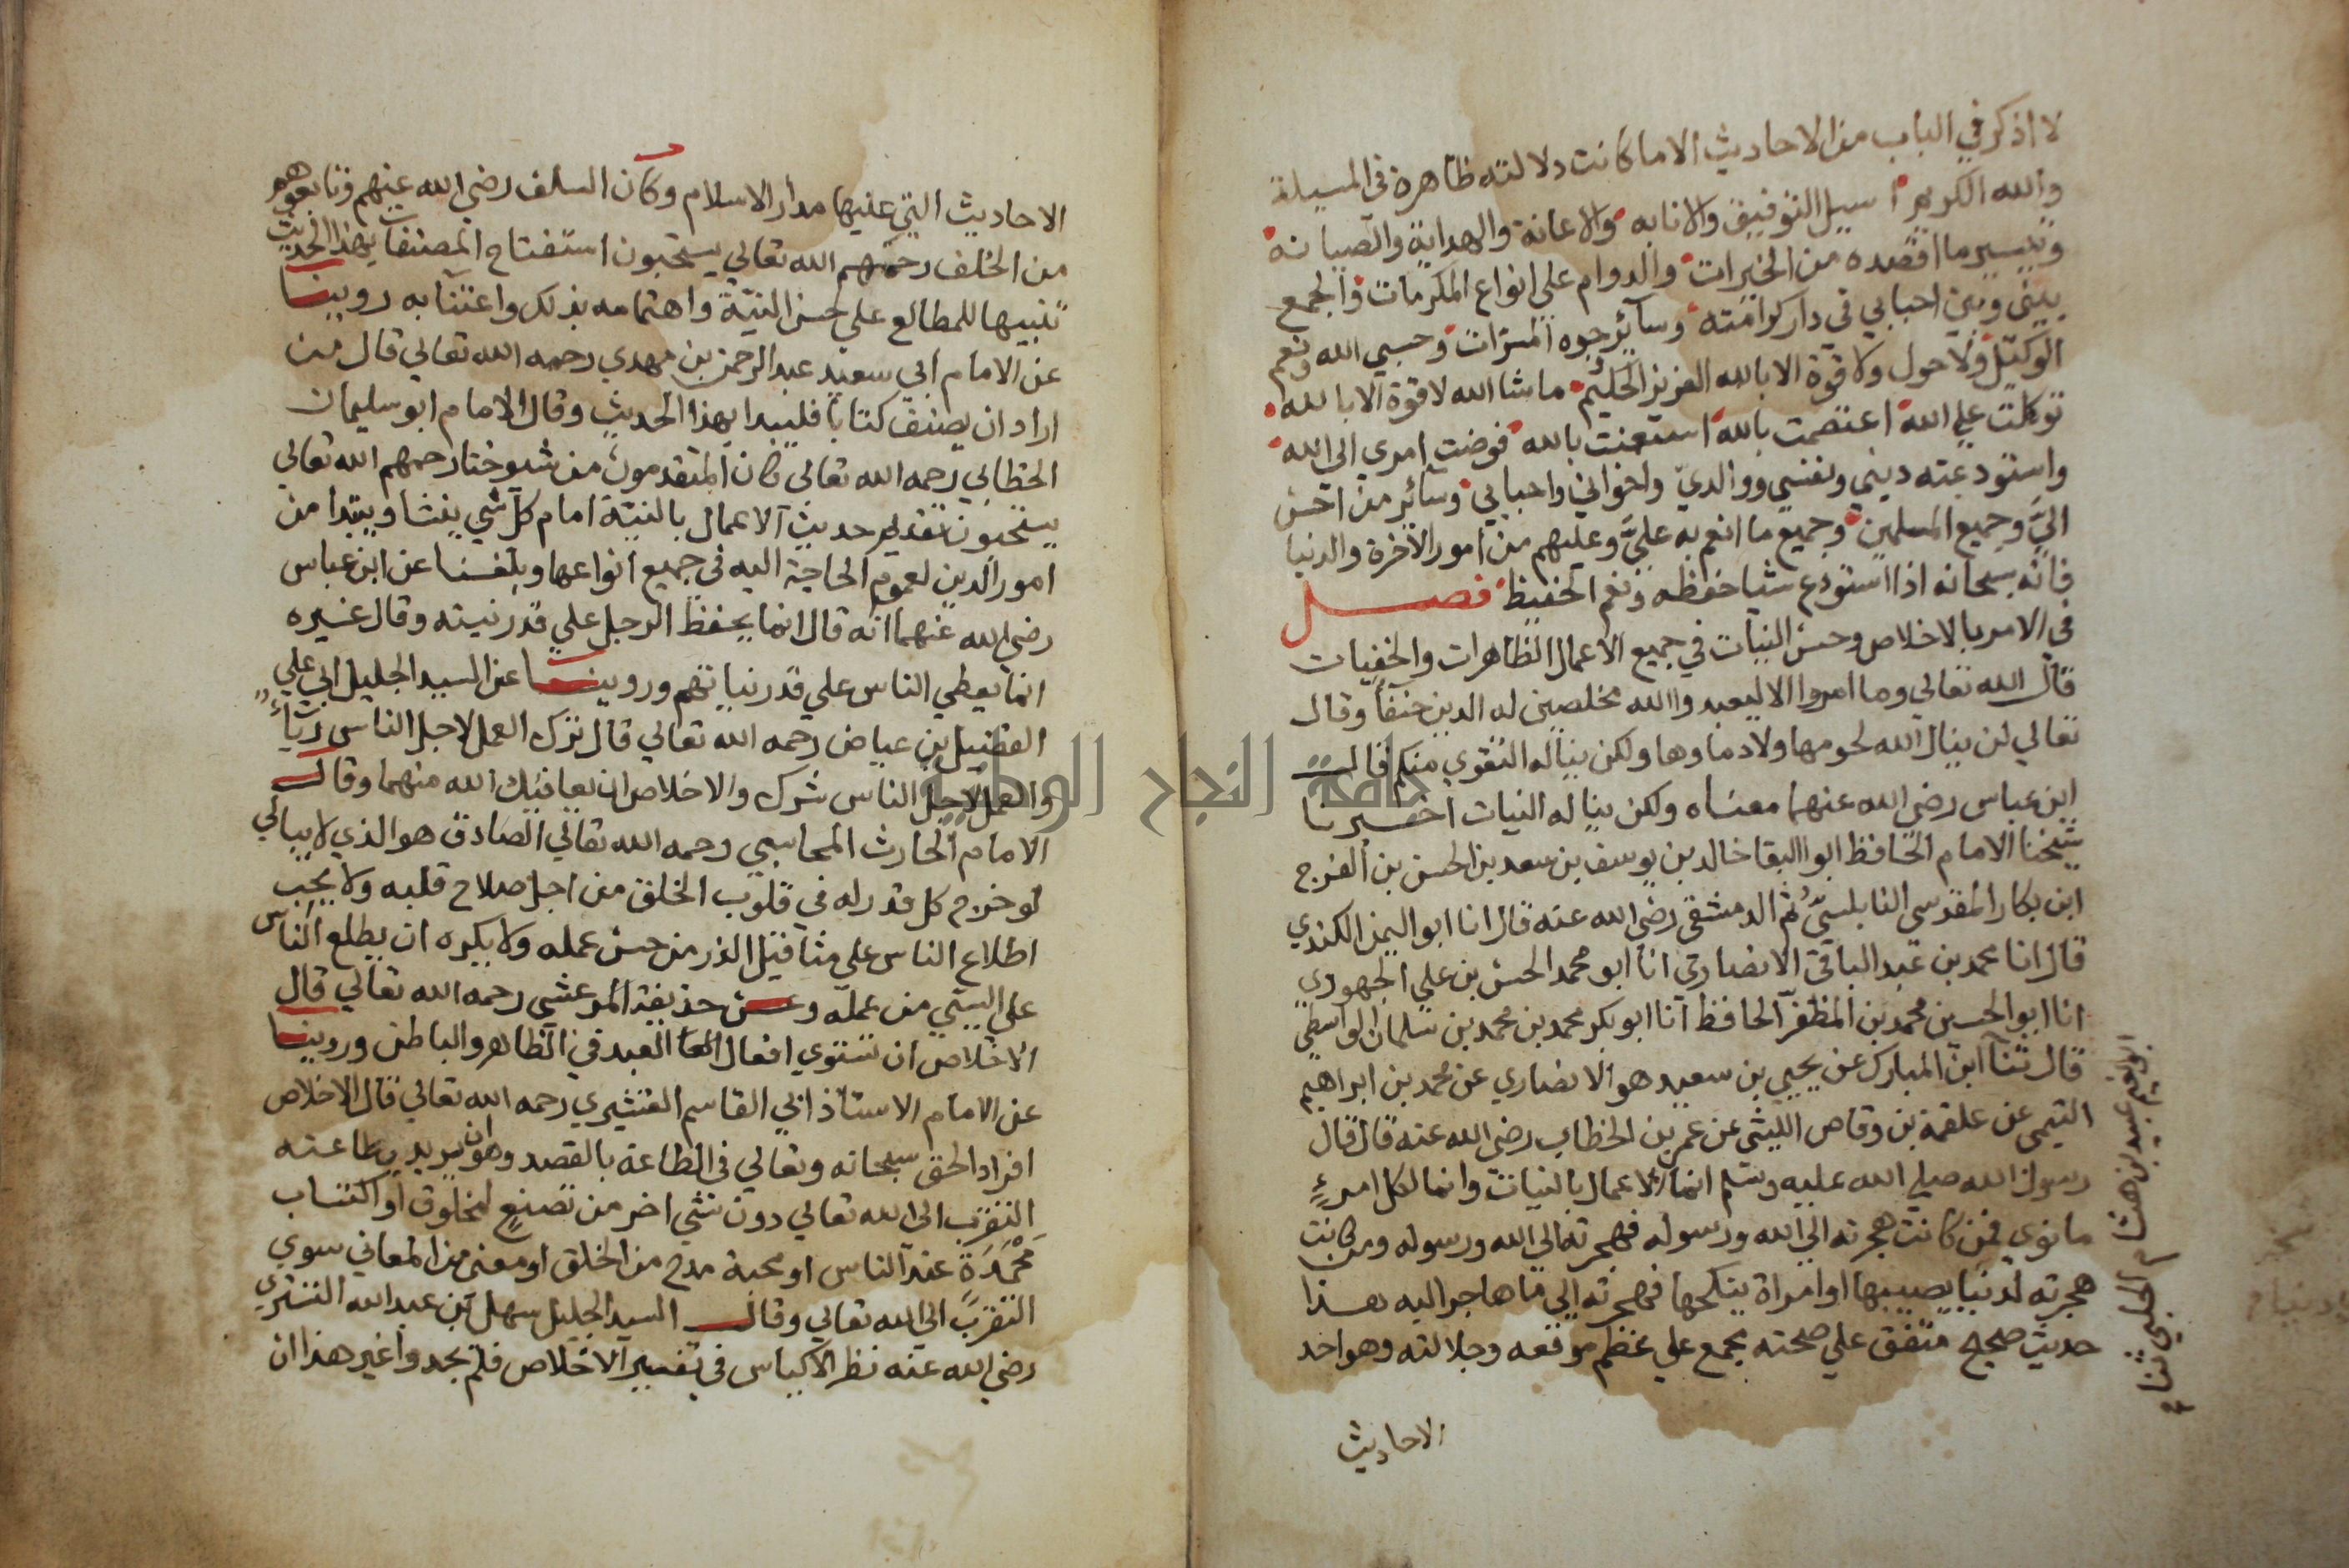 لا اذكر في الباب من الاحاديث الا ما كانت دلالته ظاهرة في المسيلة
والله الكريم اسيل التوفيق والانابه والاعانة والهداية والصيانه
وتيسير ما اقصده من الخيرات والدوام علي انواع المكرمات والجمع
بيني وبين احبابي في دار كرامته وسائر جوه المسرات وحسبي الله ونعم
الوكيل ولا حول ولا قوة الا بالله العزيز الحكيم ما شا الله لا قوة الا بالله
توكلت علي الله اعتصمت بالله استعنت بالله فوضت امري الي الله
واستودعته ديني ونفسي ووالدي واخواني واحبابي وسائر من احسن
الي وجميع المسلمين وجميع ما انعم به علي وعليهم من امور الاخرة والدنيا
فانه سبحانه اذا استودع شيا حفظه ونعم الحفيظ فصل
في الامر بالاخلاص وحسن النيات في جميع الاعمال الظاهرات والخفيات
قال الله تعالي وما امروا الا ليعبدوا الله مخلصين له الدين حنفا وقال
تعالي لن ينال الله لحومها ولا دماوها ولكن يناله التقوي منكم قال
ابن عباس رضي الله عنهما معناه ولكن يناله النيات اخبرنا
شيخنا الامام الحافظ ابوا البقا خالد بن يوسف بن سعد بن الحسن بن الفرج
ابن بكار المقدسي النابلسي ثم الدمشقي رضي الله عنه قال انا ابو اليمن الكندي
قال انا محمد بن عبد الباقي الانصاري انا ابو محمد الحسن بن علي الجهوري
انا ابو الحسين محمد بن المظفر الحافظ انا ابو بكر محمد بن محمد بن سلمان الواسطي
ابو نعيم عبيد بن هشام الحلبي ثنا
قال ثنا ابن المبارك عن يحيي بن سعيد هو الانصاري عن محمد بن ابراهيم
التيمي عن علقمة بن وقاص الليثي عن عمر بن الخطاب رضي الله عنه قال قال
رسول الله صلي الله عليه وسلم انما الاعمال بالنيات وانما لكل امرء
ما نوي فمن كانت هجرته الي الله ورسوله فهجرته الي الله ورسوله ومن كانت
هجرته لدنيا يصيبها او امراة ينكحها فهجرته الي ما هاجر اليه هذا
حديث صحيح متفق علي صحته مجمع علي عظم موقعه وجلالته وهو احد
الاحاديث
الاحاديث التي عليها مدار الاسلام وكان السلف رضي الله عنهم وتابعوهم
من الخلف رحمهم الله تعالي يستحبون استفتاح المصنفات بهذا الحديث
تنبيها للمطالع علي حسن النية واهتمامه بذلك واعتنا به روينا
عن الامام ابي سعيد عبد الرحمن بن مهدي رحمه الله تعالي قال من
اراد ان يصنف كتابا فليبدا بهذا الحديث وقال الامام ابو سليمان
الخطابي رحمه الله تعالي كان المتقدمون من شيوخنا رحمهم الله تعالي
يستحبون تقديم حديث الاعمال بالنية امام كل شي ينشا ويبتدا من
امور الدين لعموم الحاجة اليه في جميع انواعها وبلغنا عن ابن عباس
رضي الله عنهما انه قال انما يحفظ الرجل علي قدر نيته وقال غيره
انما يعطي الناس علي قدر نياتهم وروينا عن السيد الجليل ابي علي
الفضيل بن عياض رحمه الله تعالي قال ترك العمل لاجل الناس رياء
والعمل لاجل الناس شرك والاخلاص ان يعافيك الله منهما وقال
الامام الحارث المحاسبي رحمه الله تعالي الصادق هو الذي لا يبالي
لو خرج كل قدر له في قلوب الخلق من اجل صلاح قلبه ولا يحب
اطلاع الناس علي مثاقيل الذر من حسن عمله ولا يكره ان يطلع الناس
علي السيي من عمله وعن حذيفة المرعشي رحمه الله تعالي قال
الاخلاص ان تستوي افعال العبد في الظاهر والباطن وروينا
عن الامام الاستاذ ابي القاسم القشيري رحمه الله تعالي قال الاخلاص
افراد الحق سبحانه وتعالي في الطاعة بالقصد وهو ان يريد بطاعته
التقرب الي الله تعالي دون شي اخر من تصنع لمخلوق او اكتساب
محمدة عند الناس او محبة مدح من الخلق او معني من المعاني سوي
التقرب الي الله تعالي وقال السيد الجليل سهل بن عبد الله التستري
رضي الله عنه نظر الاكياس في تفسير الاخلاص فلم يجدوا غير هذا ان
جامعة النجاح الوطنية